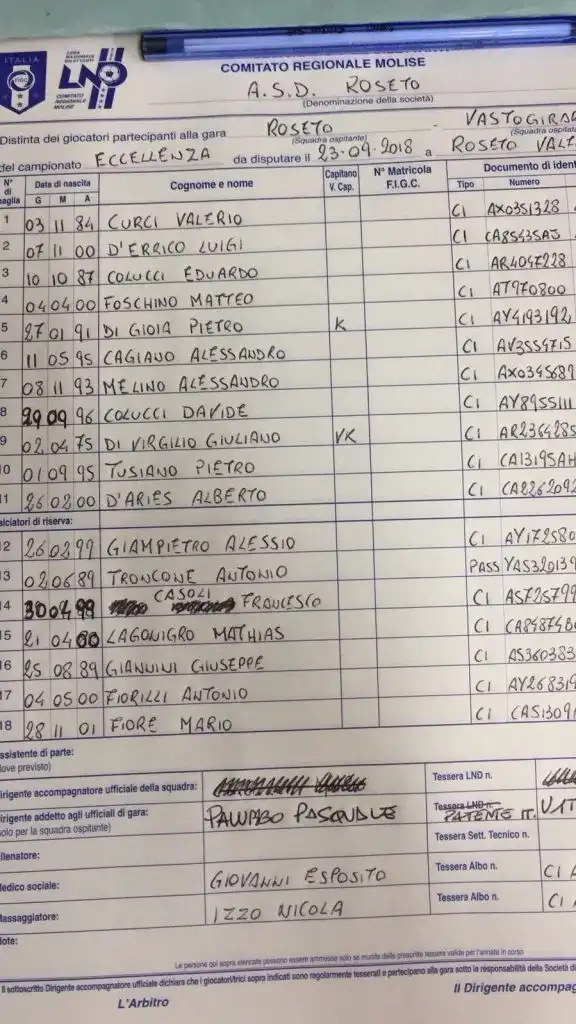 ITALIA
FIGC
LEGA NAZIONALE DILETTANTI
LND
COMITATO REGIONALE MOLISE
COMITATO REGIONALE MOLISE
A.S.D. ROSETO
(Denominazione della società)
Distinta dei giocatori partecipanti alla gara ROSETO - VASTOGIRA
(Squadra ospitante) (Squadra ospitat
del campionato ECCELLENZA da disputare il 23-09-2018 a ROSETO VALF
N° di maglia Data di nascita G M A Cognome e nome Capitano V. Cap. N° Matricola F.I.G.C. Documento di ident
Tipo Numero
1 03 11 84 CURCI VALERIO CI AX0351328
2 07 11 00 D'ERRICO LUIGI CI CA85435AJ
3 10 10 87 COLUCCI EDUARDO CI AR4047228
4 04 04 00 FOSCHINO MATTEO CI AT970800
5 27 01 91 DI GIOIA PIETRO K CI AY4193192
6 11 05 95 CAGIANO ALESSANDRO CI AV3554715
7 08 11 93 MELINO ALESSANDRO CI AX0345689
8 29 09 96 COLUCCI DAVIDE CI AY8955111
9 02 04 75 DI VIRGILIO GIULIANO VK CI AR2364285
10 01 09 95 TUSIANO PIETRO CI CA13195AH
11 26 02 00 D'ARIES ALBERTO CI CA2262092
alciatori di riserva:
12 26 02 99 GIAMPIETRO ALESSIO CI AY172580
13 02 06 89 TRONCONE ANTONIO PASS YA532013
14 30 04 99 CASOLI FRANCESCO CI AS725799
15 21 04 00 LAGONIGRO MATHIAS CI CA84874B
16 25 08 89 GIANNINI GIUSEPPE CI AS360383
17 04 05 00 FIORILLI ANTONIO CI AY268319
18 28 11 01 FIORE MARIO CI CA51309
ssistente di parte:
(ove previsto)
irigente accompagnatore ufficiale della squadra: Tessera LND n.
irigente addetto agli ufficiali di gara: PALUMBO PASQUALE Tessera LND n. PATENTE IT.
solo per la squadra ospitante) Tessera Sett. Tecnico n.
llenatore:
edico sociale: GIOVANNI ESPOSITO Tessera Albo n. CI
assaggiatore: IZZO NICOLA Tessera Albo n. CI
Note:
Le persone qui sopra elencate possono essere ammesse solo se munite delle prescritte tessere valide per l'annata in corso
Il sottoscritto Dirigente accompagnatore ufficiale dichiara che i giocatori/trici sopra indicati sono regolarmente tesserati e partecipano alla gara sotto la responsabilità della Società di
L'Arbitro Il Dirigente accompag